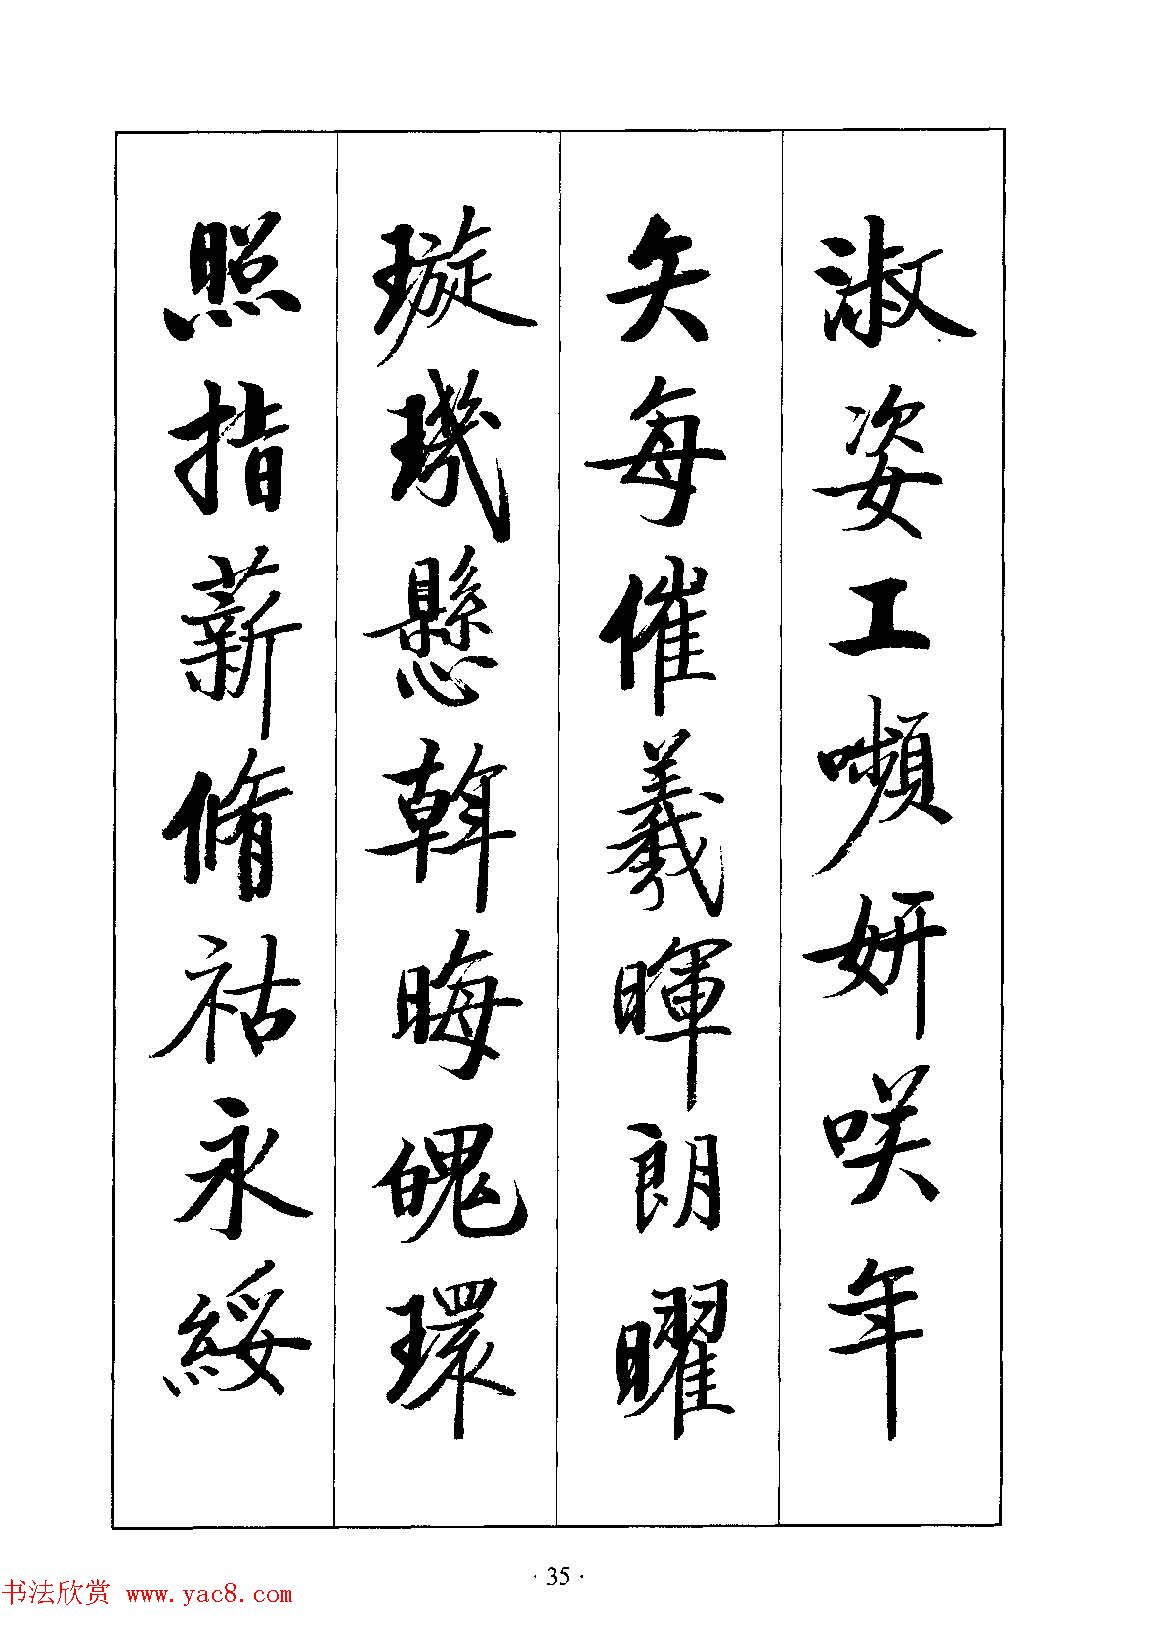 淑姿工嚬妍咲年
矢每催羲暉朗曜
璇璣懸斡晦魄環
照指薪脩祜永綏
· 35 ·
书法欣赏 www.yac8.com